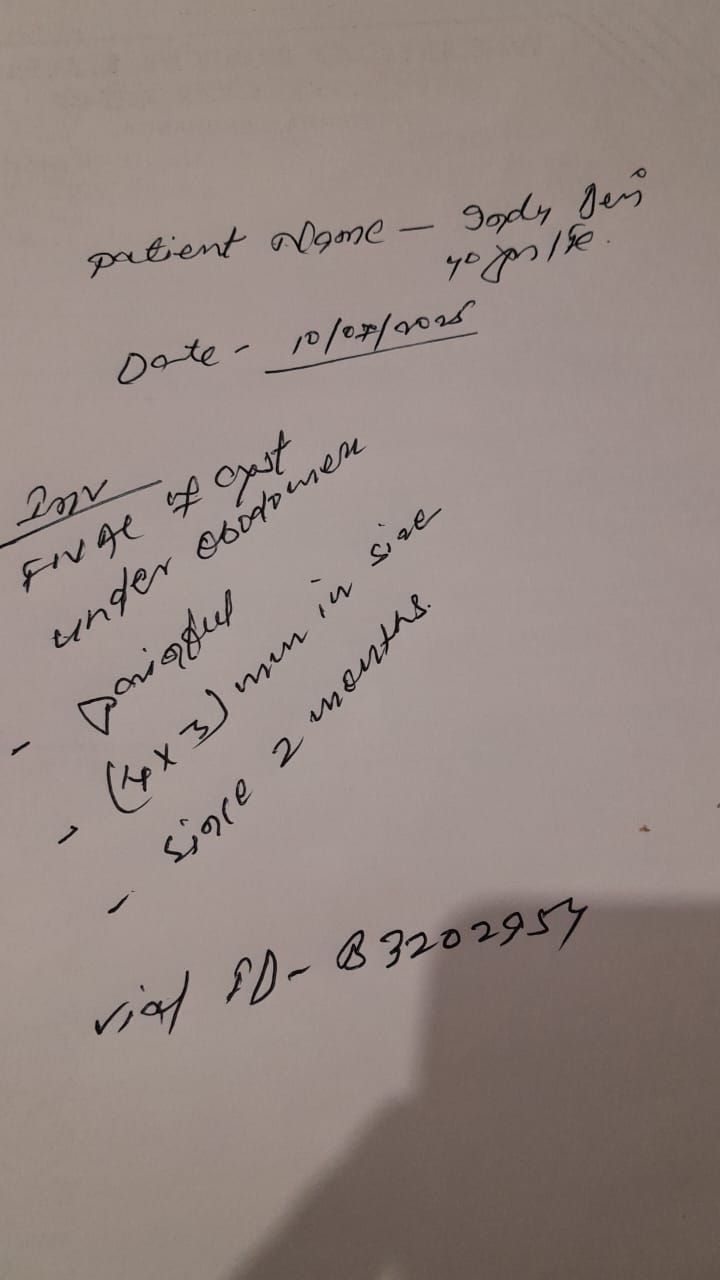 patient Name - Indu Devi
40 yrs / Fe.
Date - 10/07/2025
Inv
FNAC of cyst
under abdomen
- painful
- (4x3) mm in size
- since 2 months.
vial ID - B3202954